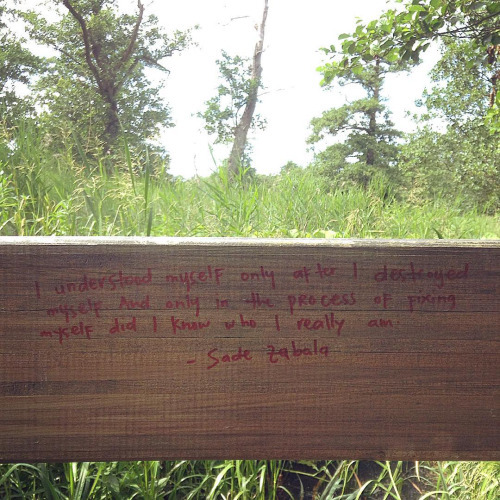 I understood myself only after I destroyed
myself. And only in the process of fixing
myself did I know who I really am
- Sade Zabala